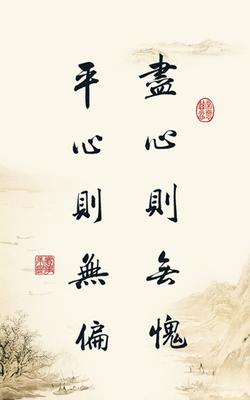 盡心則無愧
平心則無偏